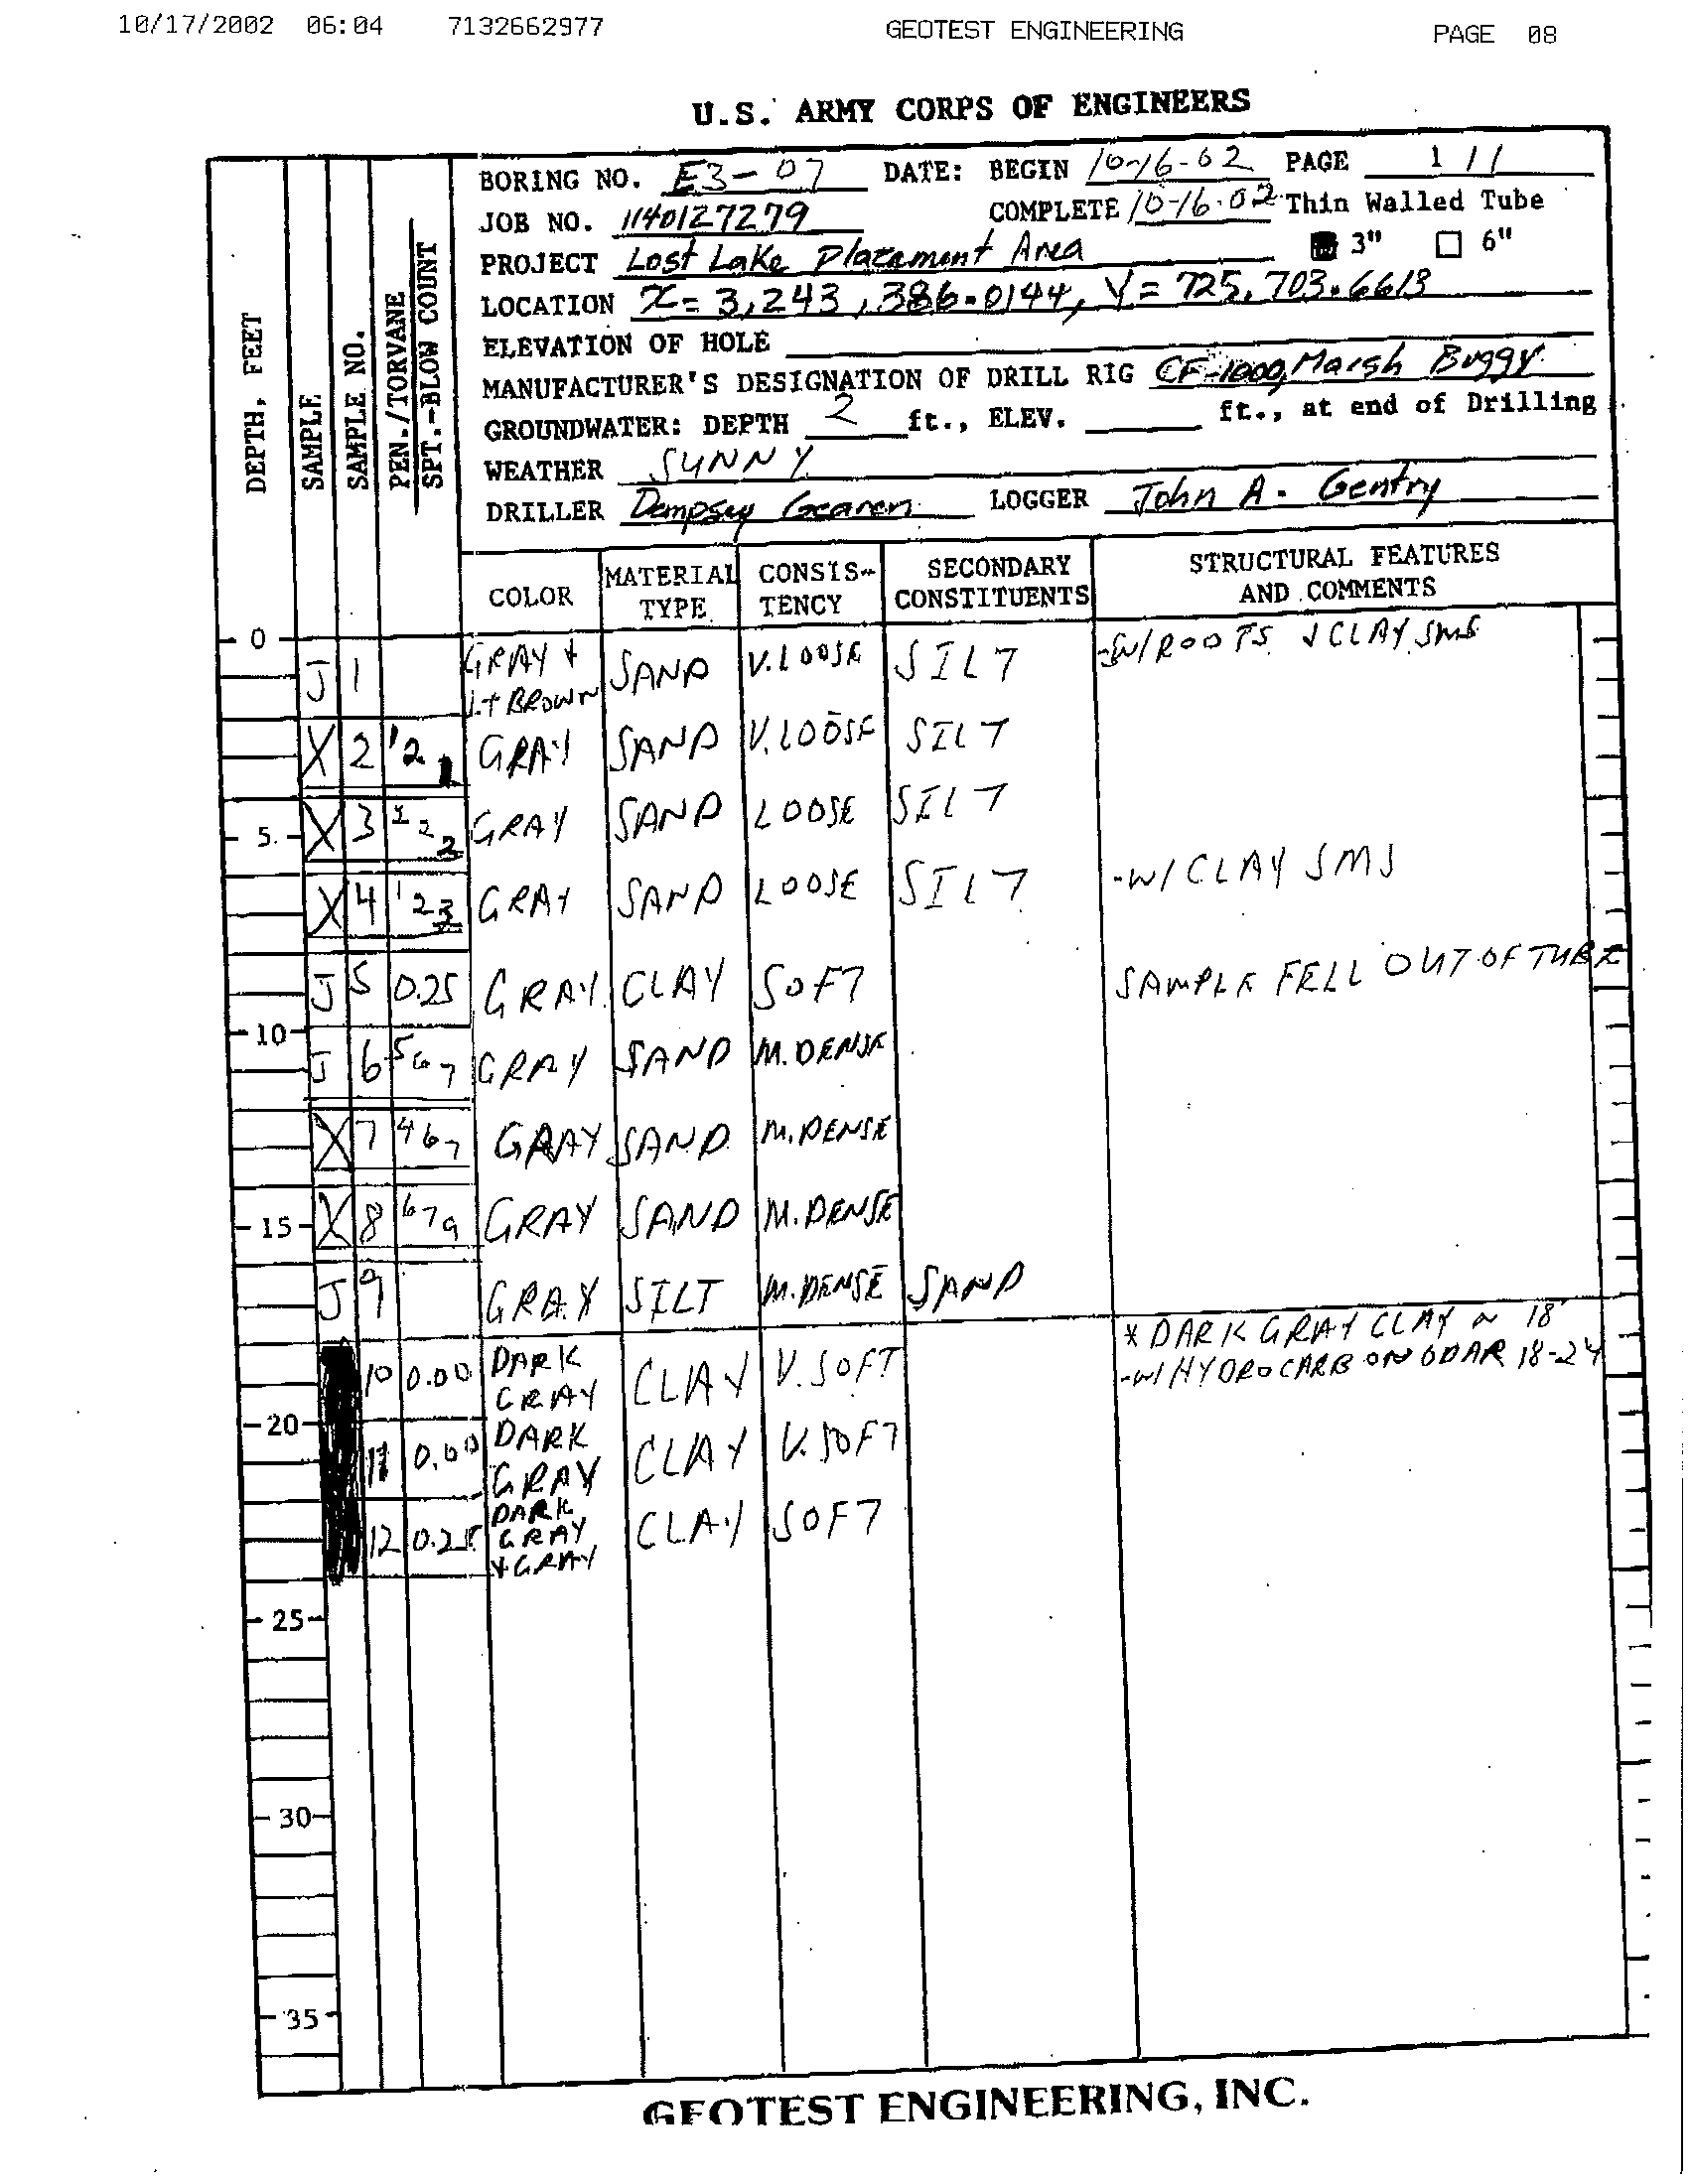 10/17/2002 06:04 7132662977 GEOTEST ENGINEERING PAGE 08
U.S. ARMY CORPS OF ENGINEERS
BORING NO. E3-07 DATE: BEGIN 10-16-02 PAGE 1 / 1
JOB NO. 1140127279 COMPLETE 10-16-02 Thin Walled Tube
PROJECT Lost Lake Placement Area 3" 6"
LOCATION X= 3,243,386.0144, Y= 725,703.6613
ELEVATION OF HOLE
MANUFACTURER'S DESIGNATION OF DRILL RIG CF-1000, Marsh Buggy
GROUNDWATER: DEPTH 2 ft., ELEV. ft., at end of Drilling
WEATHER SUNNY
DRILLER Dempsey Gearen LOGGER John A. Gentry
DEPTH, FEET
SAMPLE
SAMPLE NO.
PEN./TORVANE
SPT.-BLOW COUNT
COLOR MATERIAL TYPE CONSIS-TENCY SECONDARY CONSTITUENTS STRUCTURAL FEATURES AND COMMENTS
0
J 1 GRAY + LT BROWN SAND V. LOOSE SILT -W/ROOTS + CLAY SMS
X 2 1 2 1 GRAY SAND V. LOOSE SILT
5 X 3 1 2 2 GRAY SAND LOOSE SILT
X 4 1 2 3 GRAY SAND LOOSE SILT -W/CLAY SMS
J 5 0.25 GRAY CLAY SOFT SAMPLE FELL OUT OF TUBE
10
J 6 5 6 7 GRAY SAND M. DENSE
X 7 4 6 7 GRAY SAND M. DENSE
15 X 8 6 7 9 GRAY SAND M. DENSE
J 9 GRAY SILT M. DENSE SAND
* DARK GRAY CLAY ~ 18'
10 0.00 DARK GRAY CLAY V. SOFT -W/HYDROCARBON ODAR 18-24
20
11 0.00 DARK GRAY CLAY V. SOFT
12 0.25 DARK GRAY + GRAY CLAY SOFT
25
30
35
GEOTEST ENGINEERING, INC.